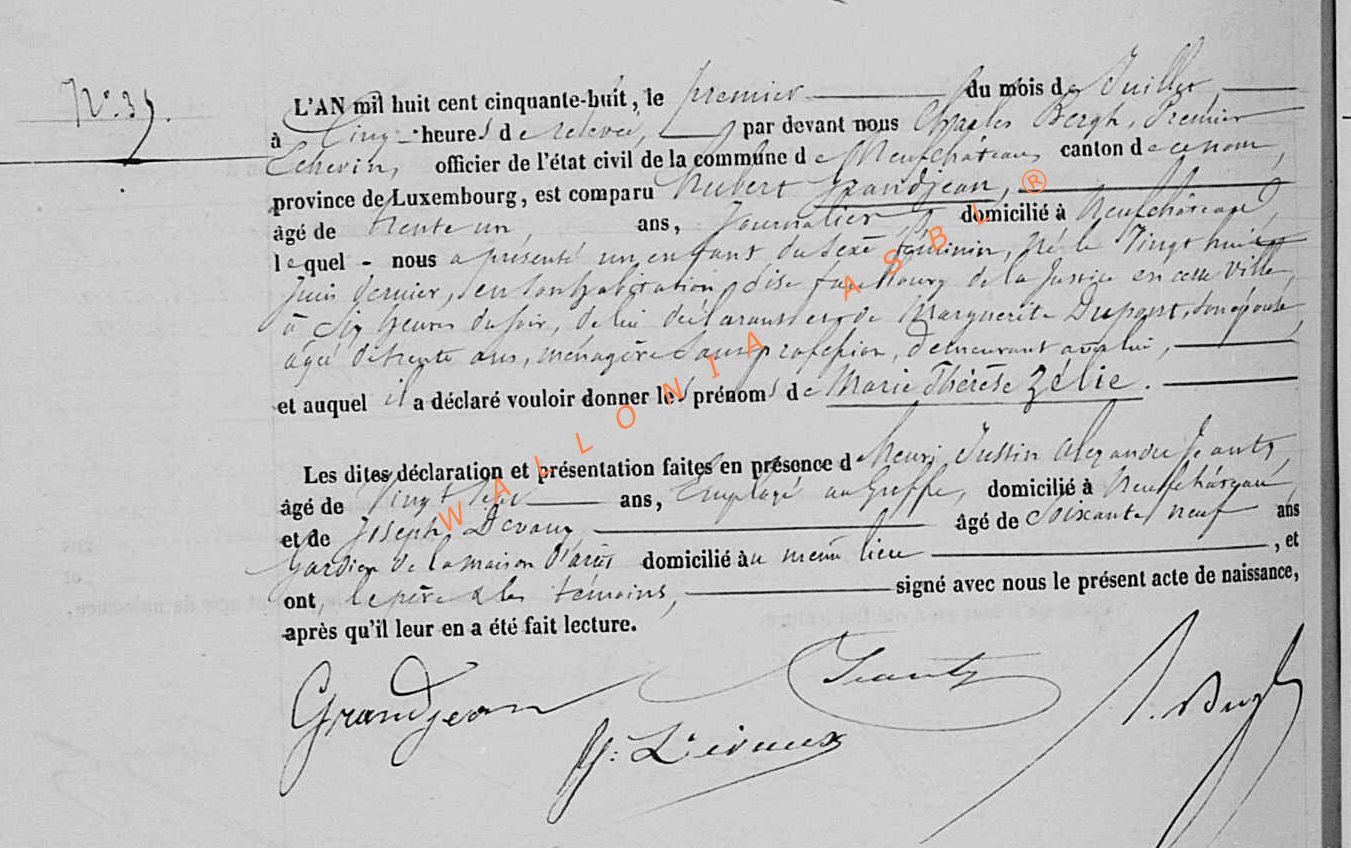 N° 39.
L'AN mil huit cent cinquante-huit, le premier du mois de Juillet,
à Cinq heures de relevée, par devant nous Charles Bergh, Premier
Echevin, officier de l'état civil de la commune de Neufchateau, canton de ce nom,
province de Luxembourg, est comparu Hubert Grandjean,
âgé de trente un ans, Journalier, domicilié à Neufchâteau,
lequel - nous a présenté un enfant du sexe féminin, né le Vingt huit
Juin dernier, en son habitation, dise faubourg de la Justice en cette Ville,
à Six heures du soir, de lui déclarant et de Marguerite Dupont, son épouse,
âgée de trente ans, ménagère sans profession, demeurant avec lui,
et auquel il a déclaré vouloir donner les prénoms de Marie Thérèse Zélie.
Les dites déclaration et présentation faites en présence de Henri Justin Alexandre Jeanty,
âgé de Vingt ans, Employé au Greffe, domicilié à Neufchâteau,
et de Joseph Devaux, âgé de Soixante neuf ans
Gardien de la maison d'arrêt domicilié au même lieu , et
ont, le père & les témoins, signé avec nous le présent acte de naissance,
après qu'il leur en a été fait lecture.
Grandjean
Jeanty
J. Devaux
WALLONIA ASBL ®